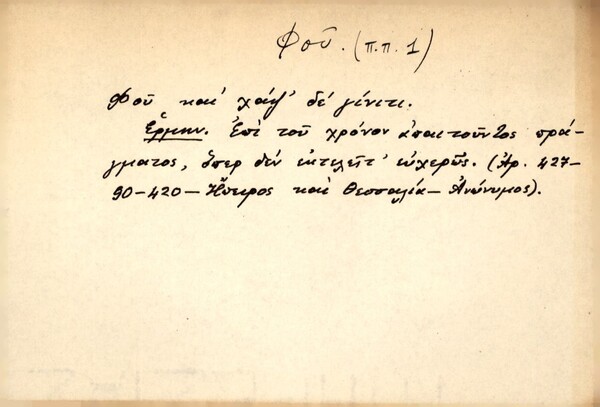 Φοῦ. (π.π. 1)
Φοῦ καὶ χάψ' δέ γίνιτι.
Ἑρμην. Ἐπὶ τοῦ χρόνον ἀπαιτοῦντος πρά-
γματος, ὅπερ δέν ἐκτελεῖτ' εὐχερῶς. (Ἀρ. 427-
90-420- Ἤπειρος καὶ Θεσσαλία- Ἀνώνυμος).